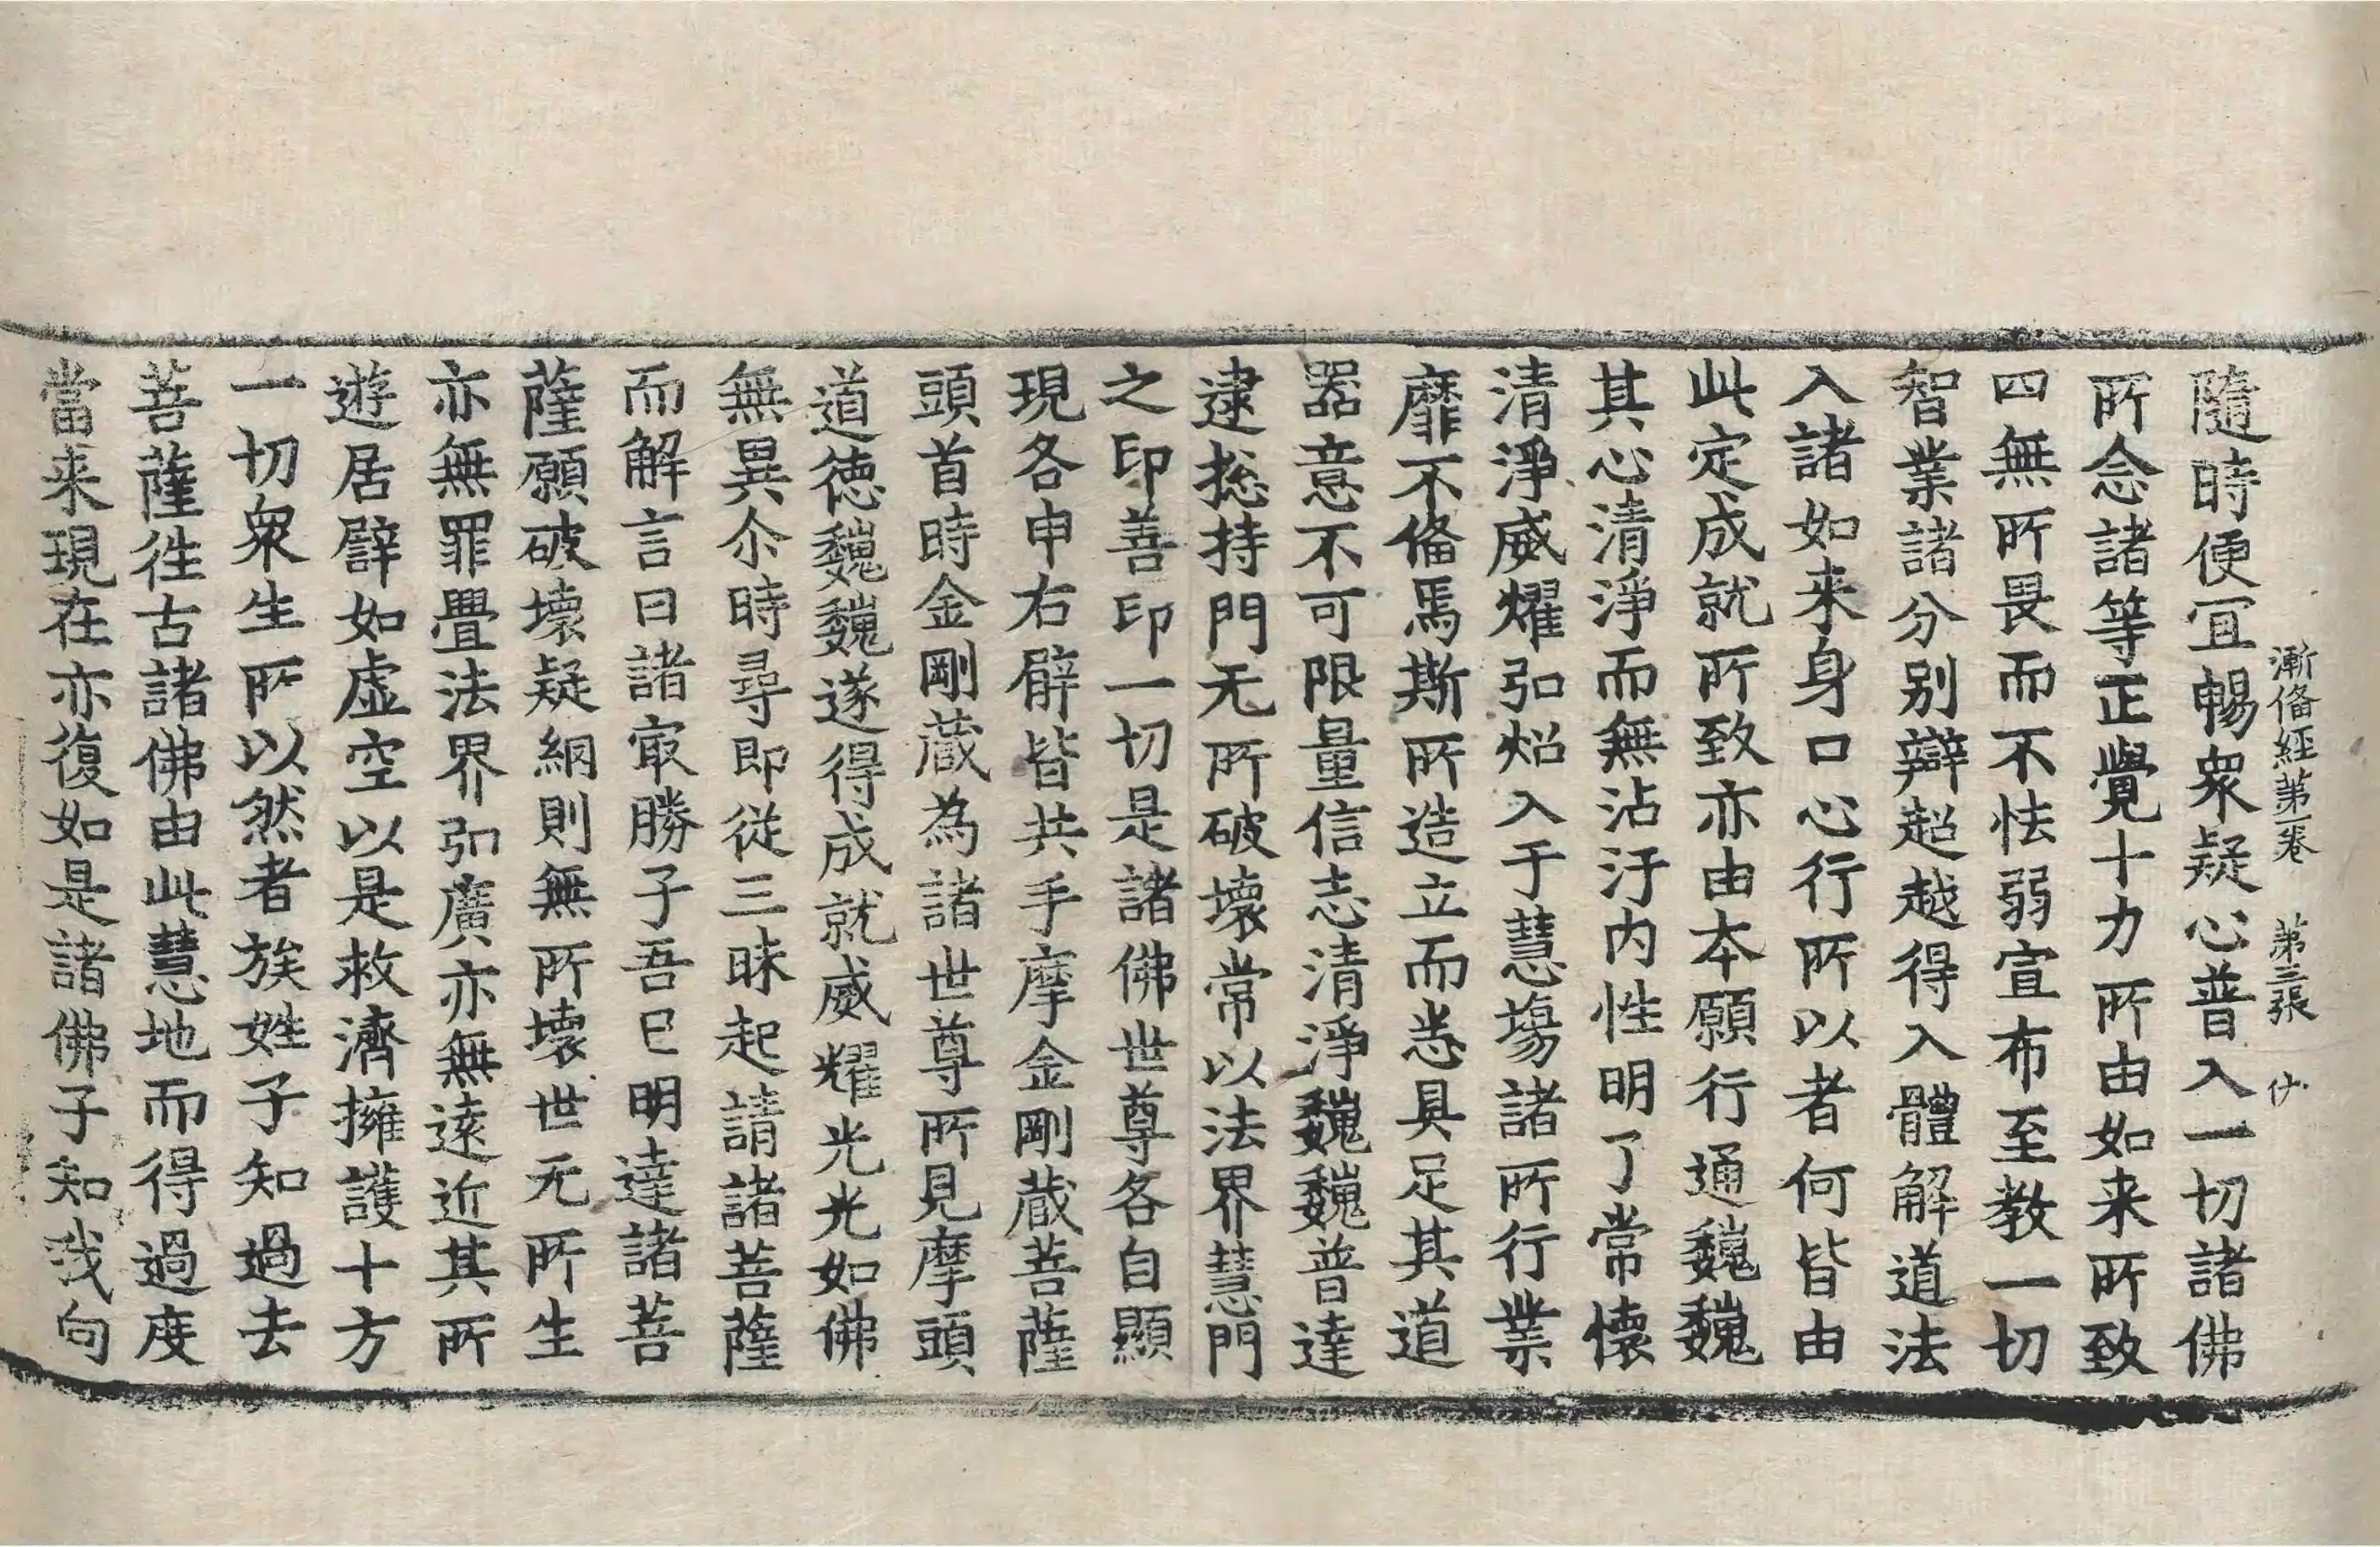 漸俻經第一卷　第三張　伏
隨時便冝暢衆疑心普入一切諸佛
所念諸等正覺十力所由如来所致
四無所畏而不怯弱宣布至教一切
智業諸分别辯超越得入體解道法
入諸如来身口心行所以者何皆由
此定成就所致亦由本願行通巍巍
其心清淨而無沾汙内性明了常懐
清淨威耀弘炤入于慧場諸所行業
靡不俻焉斯所造立而悉具足其道
器意不可限量信志清淨巍巍普達
逮捴持門无所破壊常以法界慧門
之印善印一切是諸佛世尊各自顯
現各申右臂皆共手摩金剛蔵菩薩
頭首時金剛蔵為諸世尊所見摩頭
道徳巍巍遂得成就威耀光光如佛
無異尒時尋即從三昧起請諸菩薩
而解言曰諸㝡勝子吾已明達諸菩
薩願破壊疑網則無所壊世无所生
亦無罪疊法界弘廣亦無遠近其所
遊居譬如虚空以是救濟擁護十方
一切衆生所以然者族姓子知過去
菩薩徃古諸佛由此慧地而得過度
當来現在亦復如是諸佛子知我向